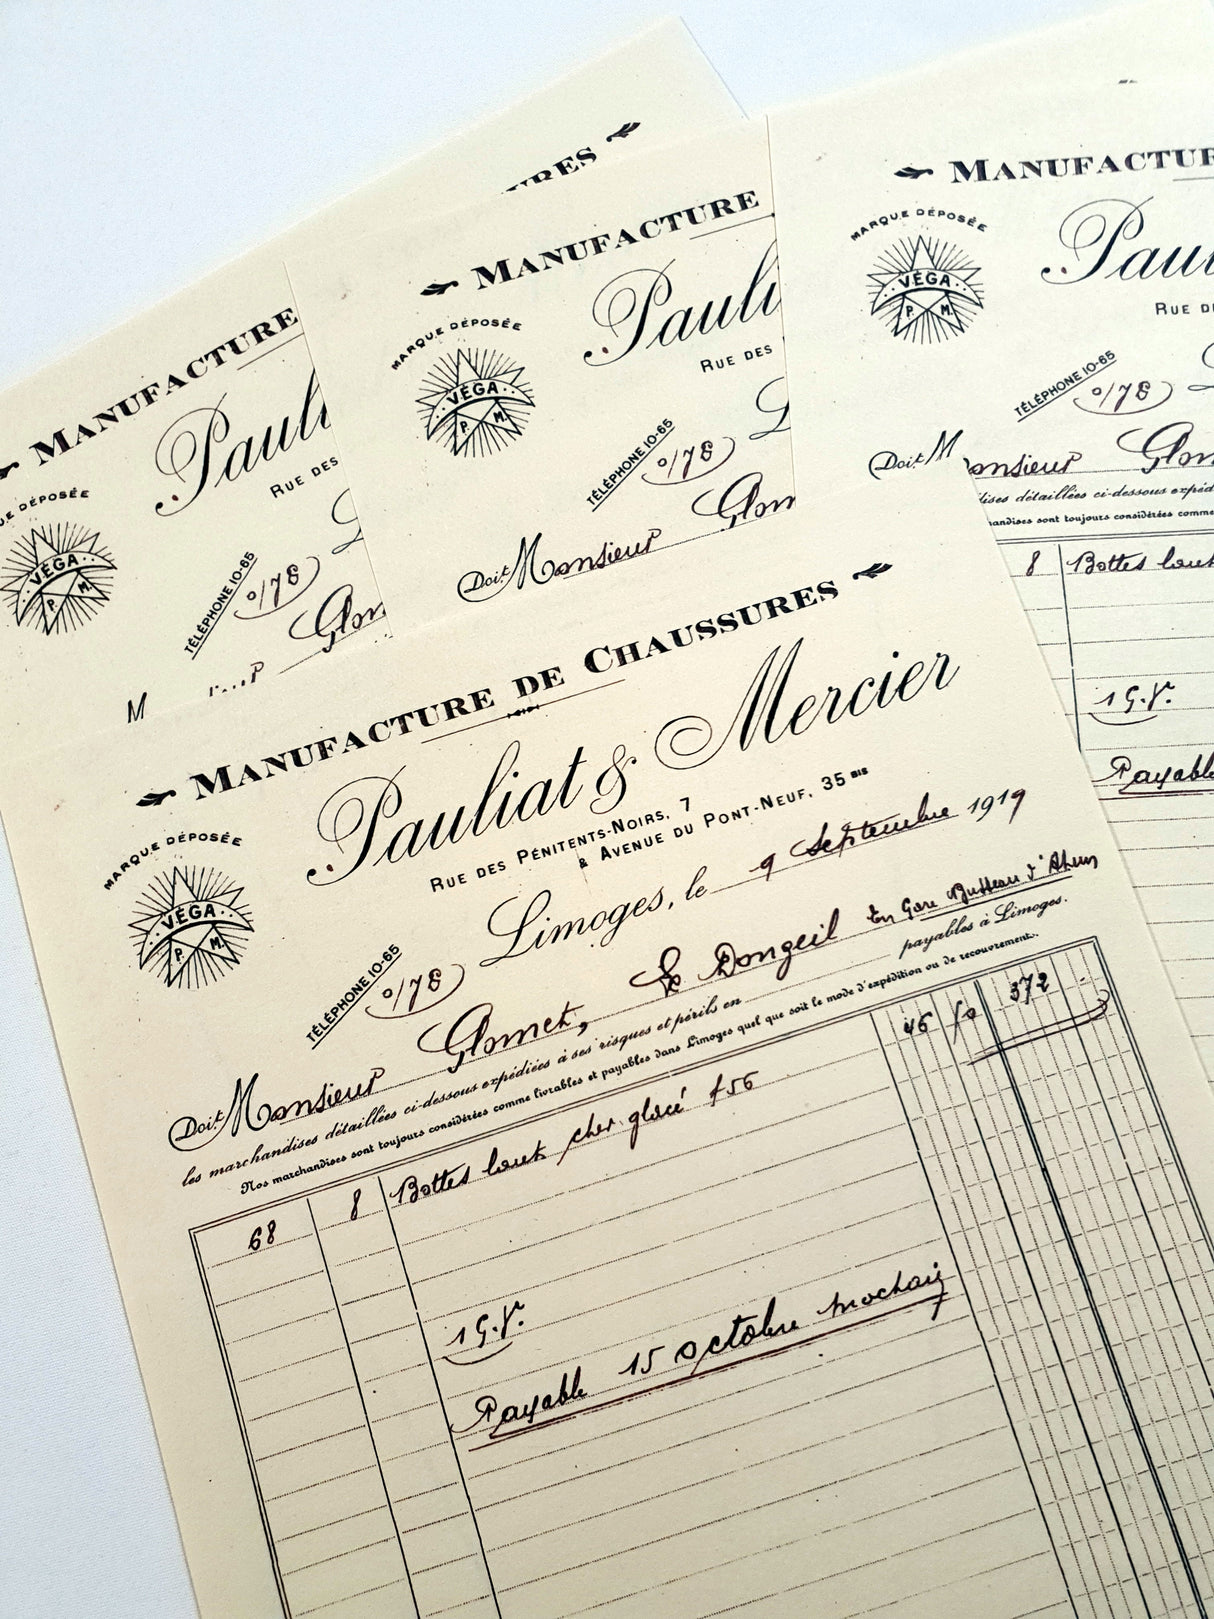 URES
MANUFACTURE
MARQUE DÉPOSÉE
VÉGA
P. M.
Pauli
RUE DES
TÉLÉPHONE 10-65
0/78
Doit Monsieur Glom
MANUFACTUR
MARQUE DÉPOSÉE
VÉGA
P. M.
Pau
RUE D
TÉLÉPHONE 10-65
0/78
Doit Monsieur Glom
ises détaillées ci-dessous expéd
andises sont toujours considérées comme
8 Bottes
1 G.V.
Payable
MANUFACTURE
UE DÉPOSÉE
VÉGA
P. M.
Pauli
RUE DES
TÉLÉPHONE 10-65
0/78
M Glom
MANUFACTURE DE CHAUSSURES
MARQUE DÉPOSÉE
VÉGA
P. M.
Pauliat & Mercier
RUE DES PÉNITENTS-NOIRS, 7
& AVENUE DU PONT-NEUF, 35 BIS
TÉLÉPHONE 10-65
0/78
Limoges, le 9 Septembre 1919
Doit Monsieur Glomet, Le Dongeil En Gare Busseau d'Ahun
les marchandises détaillées ci-dessous expédiées à ses risques et périls en payables à Limoges.
Nos marchandises sont toujours considérées comme livrables et payables dans Limoges quel que soit le mode d'expédition ou de recouvrement.
68 8 Bottes chev. glacé 456 46 50 372 -
1 G.V.
Payable 15 octobre prochain